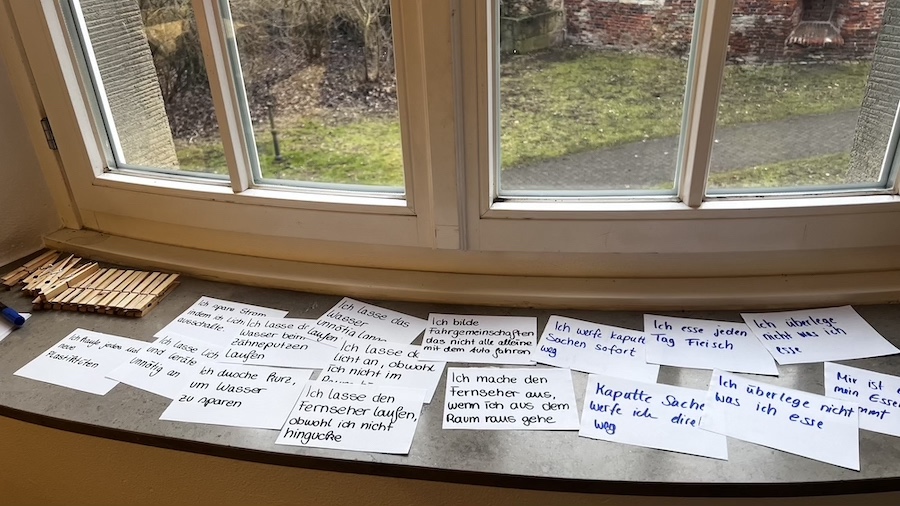 Ich spare Strom
indem ich Lich
ausschalte
Ich lasse das
Wasser
unnötig lang
Ich lasse d
Wasser beim
Zähneputzen
laufen
Ich kaufe jeden
neue
Plastiktüten
Ich lasse L
und Geräte
unnötig an
Ich dusche kurz,
um Wasser
zu sparen
Ich lasse d
Licht an, obwohl
ich nicht im
Ich lasse den
Fernseher laufen,
obwohl ich nicht
hingucke
Ich bilde
Fahrgemeinschaften
das nicht alle alleine
mit dem Auto fahren
Ich mache den
Fernseher aus,
wenn ich aus dem
Raum raus gehe
Ich werfe kaputte
Sachen sofort
weg
Kaputte Sache
werfe ich dire
weg
Ich esse jeden
Tag Fleisch
Ich überlege nicht
was ich esse
Ich überlege
nicht was ich
esse
Mir ist
mein Essen
mmt